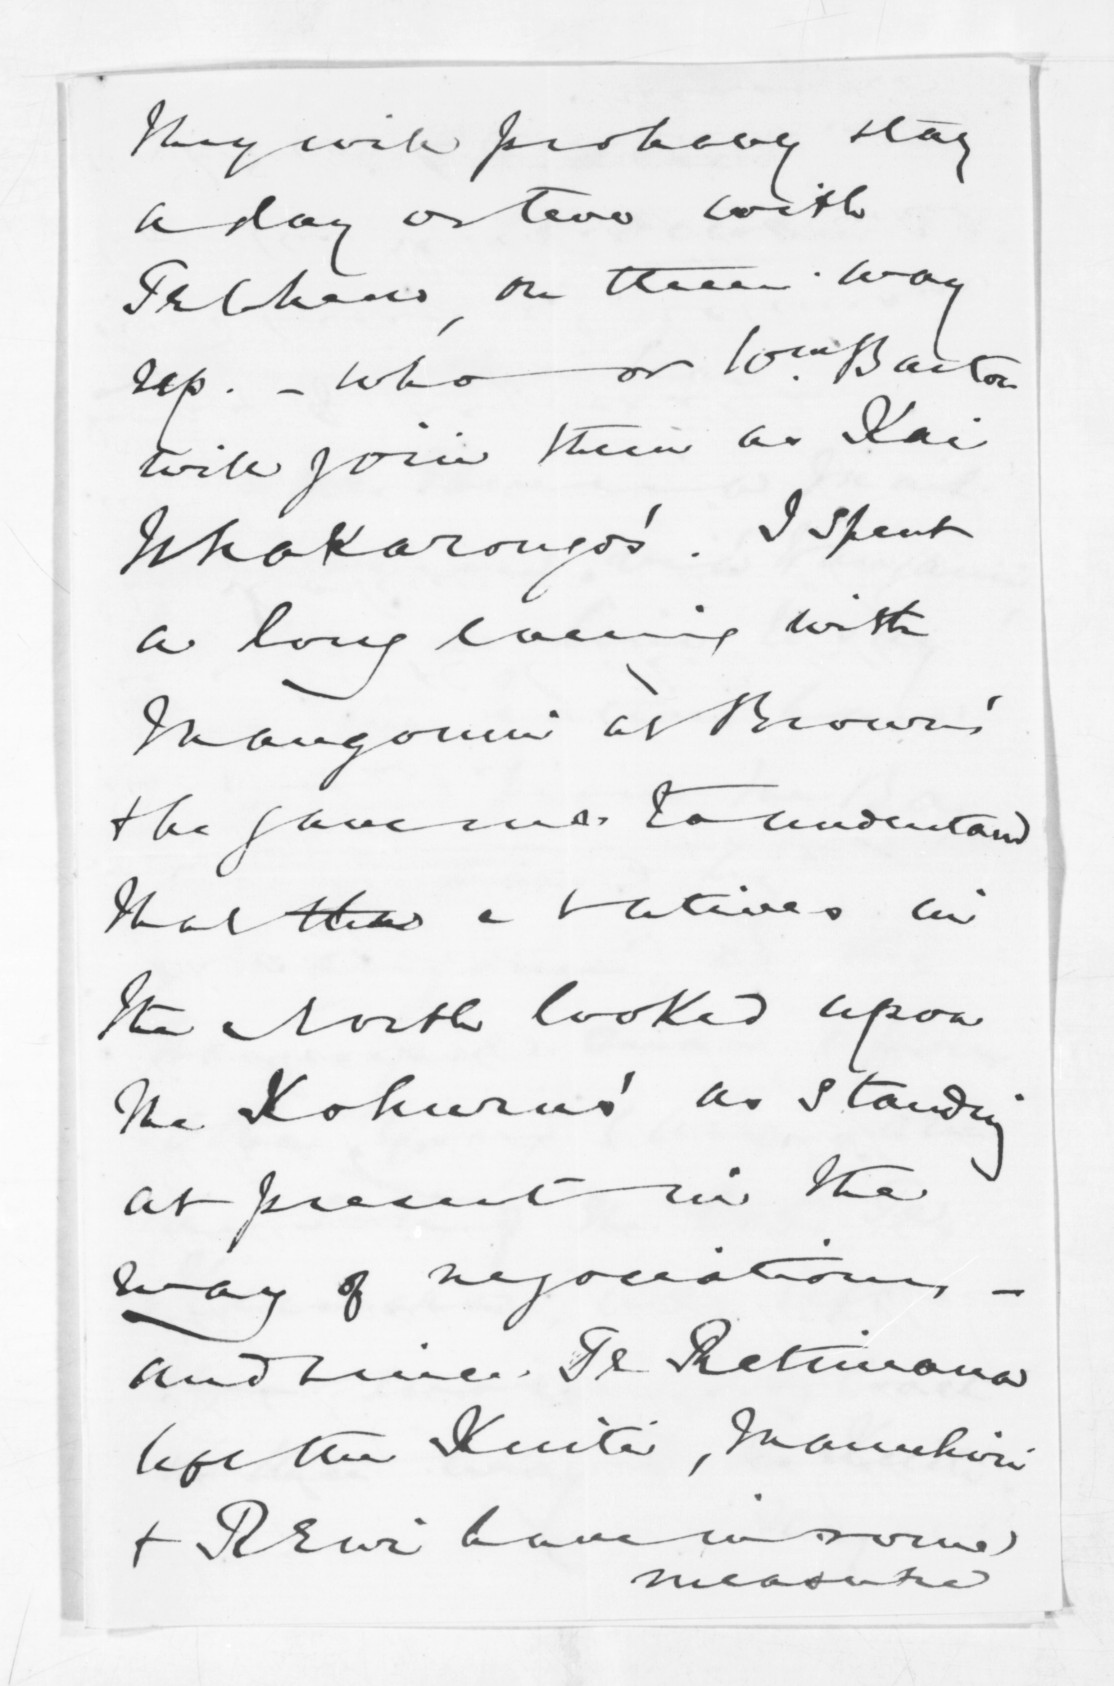 They will probably stay
a day or two with
Te Wheoro, on their way
up. - who or Wm. Barton
will join them as Kai
Whakarongo's. I spent
a long evening with
Mangonui at Brown's
& he gave me to understand
that natives in
the North looked upon
the Kohuru's as standing
at present in the
way of negociations -
and since Te Retimana
left the Kuiti, Manuhiri
& Rewi have in some
measure